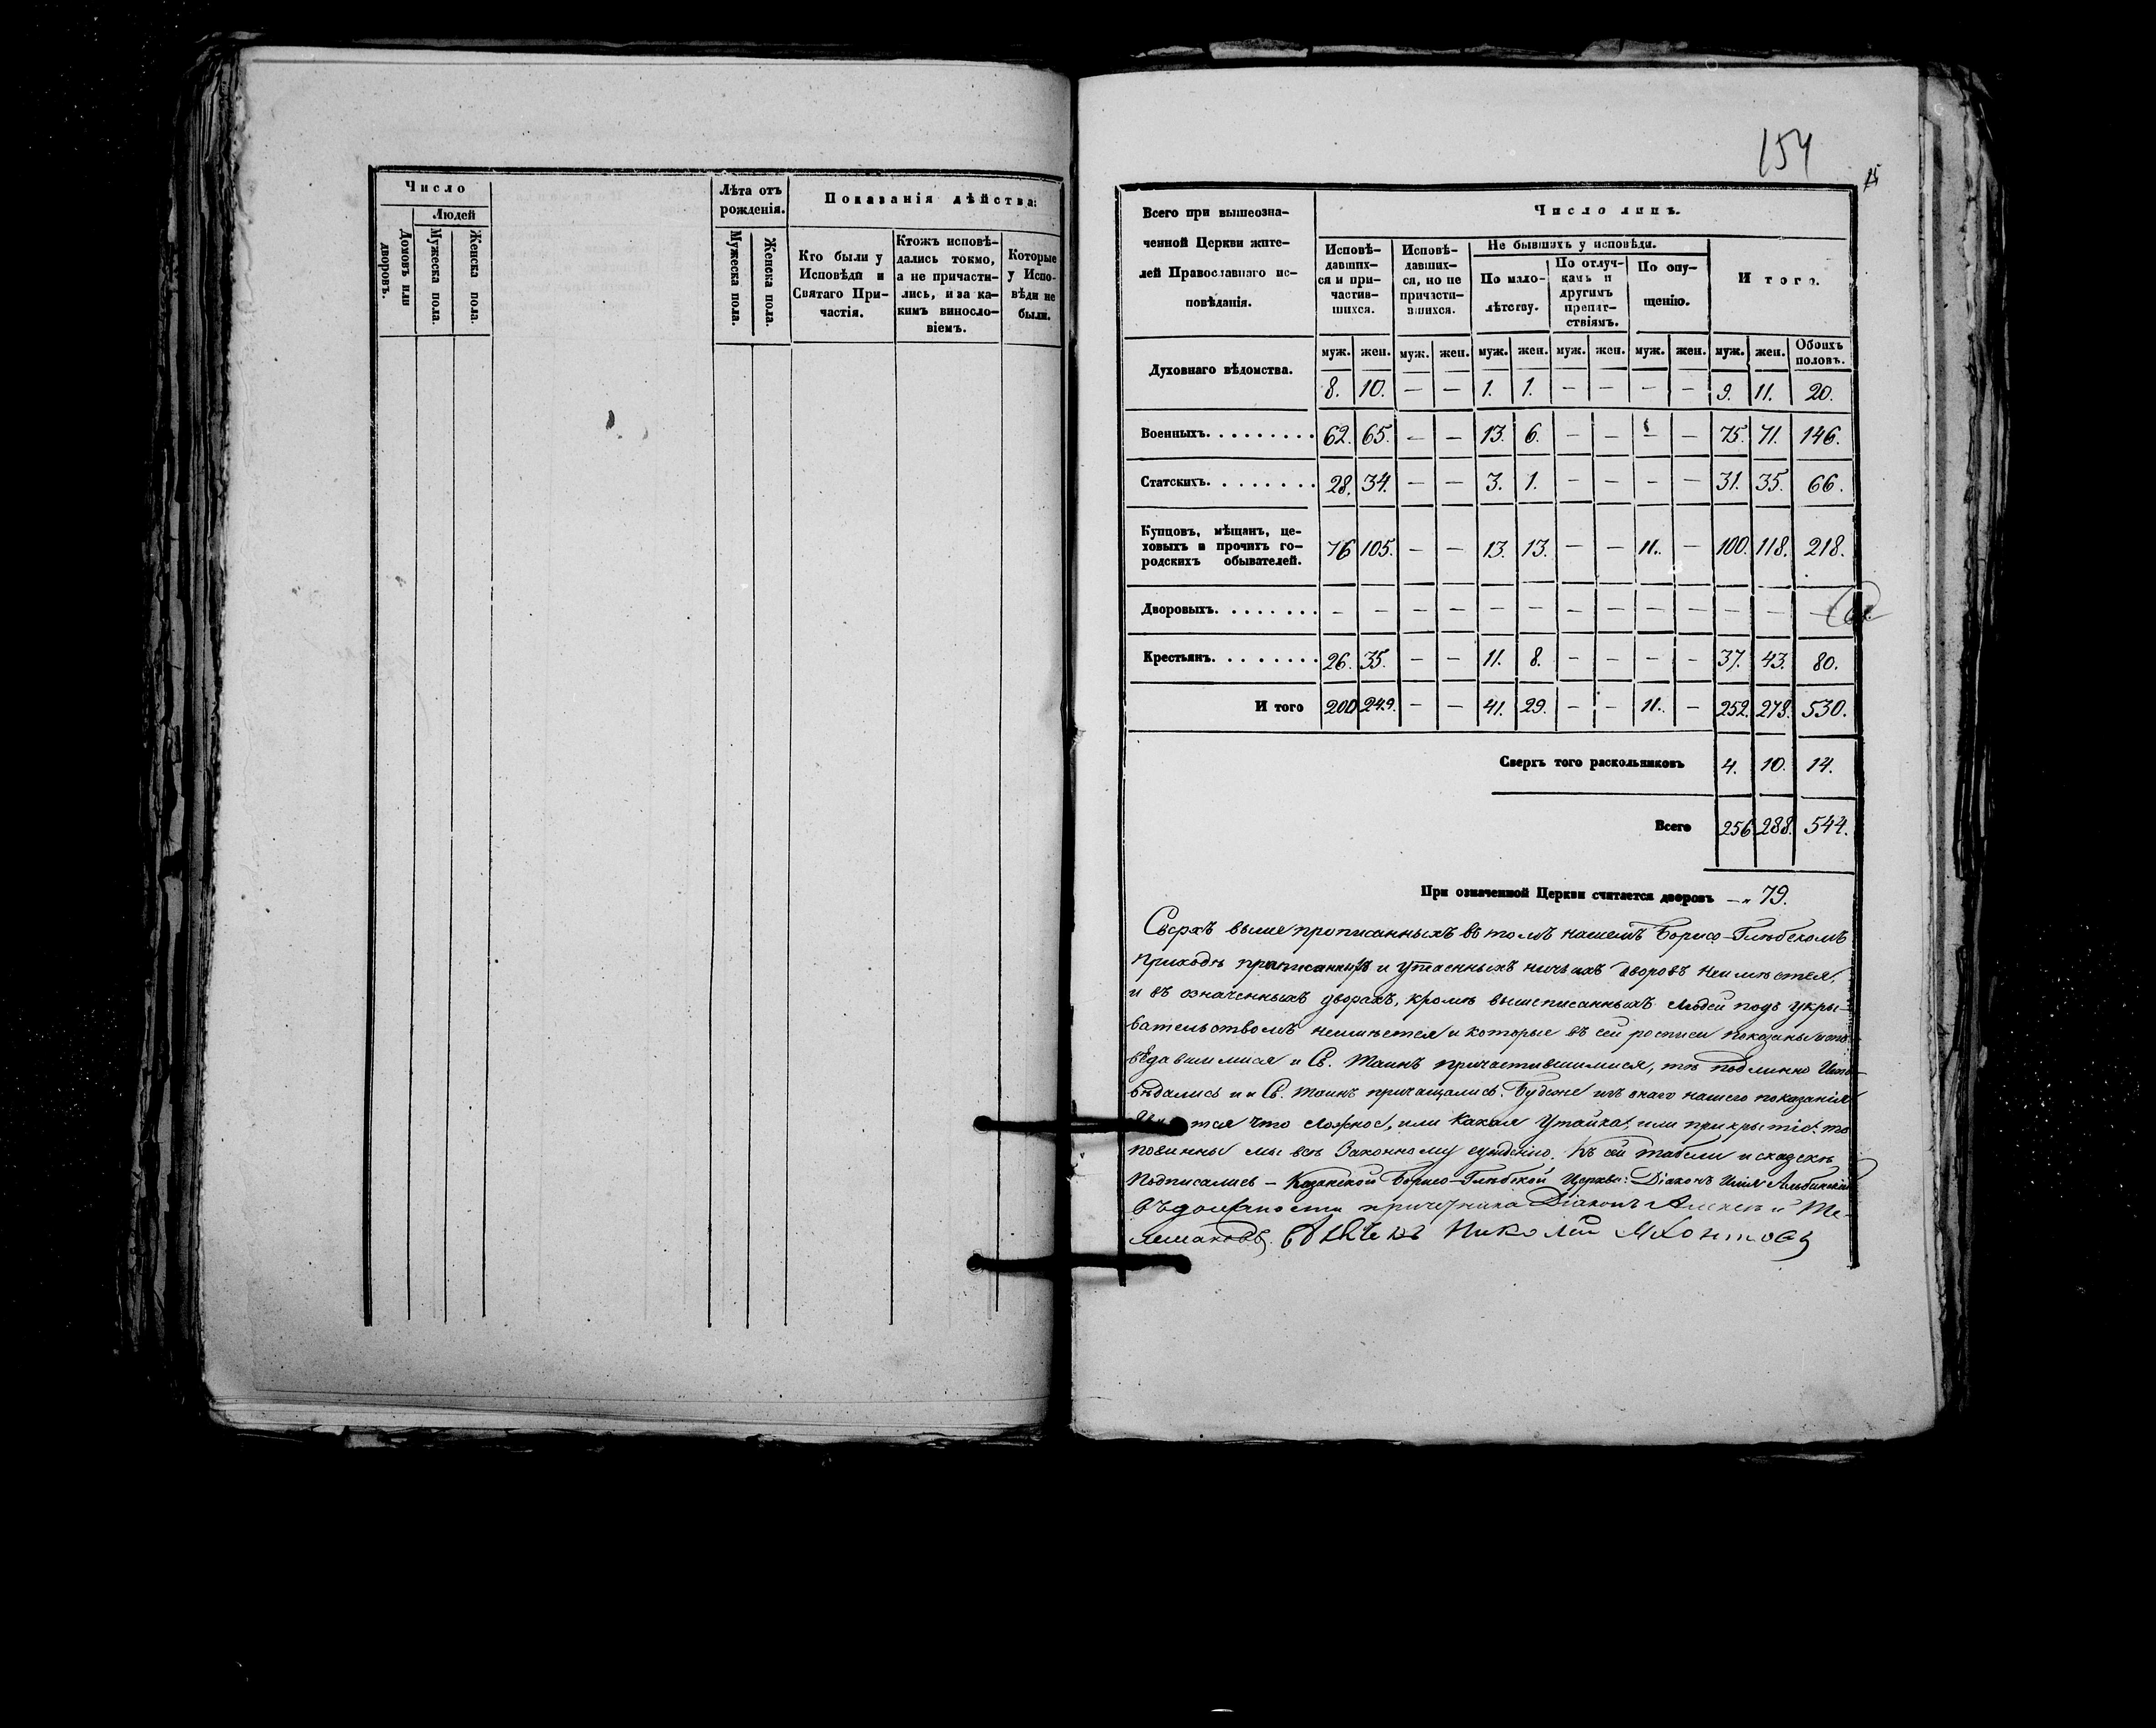 Число
Людей
Домовъ или дворовъ.
Мужеска пола.
Женска пола.
Лѣта отъ рожденія.
Мужеска пола.
Женска пола.
Показанія дѣйства:
Кто были у
Исповѣди и
Святаго При-
частія.
Ктожъ исповѣ-
дались токмо,
а не причасти-
лись, и за ка-
кимъ винословіемъ.
Которые
у Испо-
вѣди не
были.
154
Всего при вышеозна-
ченной Церкви жите-
лей Православнаго ис-
повѣданія.
Число лицъ.
Исповѣ-
давших-
ся и при-
частив-
шихся.
Исповѣ-
давших-
ся, но не
причасти-
вшихся.
Не бывшихъ у исповѣди.
По мало-
лѣтству.
По отлуч-
камъ и
другимъ
препят-
ствіямъ.
По опу-
щенію.
И того.
муж. жен. муж. жен. муж. жен. муж. жен. муж. жен. муж. жен. Обоихъ половъ.
Духовнаго вѣдомства. 8. 10. — — 1. 1. — — — — 9. 11. 20.
Военныхъ. 62. 65. — — 13. 6. — — — — 75. 71. 146.
Статскихъ. 28. 34. — — 3. 1. — — — — 31. 35. 66.
Купцовъ, мѣщанъ, це-
ховыхъ и прочихъ го-
родскихъ обывателей. 76 105. — — 13. 13. — — 11. — 100. 118. 218.
Дворовыхъ. — — — — — — — — — — — — —
Крестьянъ. 26. 35. — — 11. 8. — — — — 37. 43. 80.
И того 200 249. — — 41. 29. — — 11. — 252. 278. 530.
Сверхъ того раскольниковъ 4. 10. 14.
Всего 256. 288. 544.
При означенной Церкви считается дворовъ — „ 79.
Сверхъ выше прописанныхъ въ томъ нашемъ Борисо-Глѣбскомъ
приходѣ прописанныхъ и утаенныхъ ничьихъ дворовъ неимѣется,
и въ означенныхъ дворахъ, кромѣ вышеписанныхъ людей подъ укры-
вательствомъ неимѣется и которые въ сей росписи показаны испо-
вѣдавшимися и Св. Таинъ причастившимися, тѣ подлинно Испо-
вѣдались и и Св. Таинъ причащались. Будеже изъ онаго нашего показанія
что ложное, или какая утайка, или прикрытіе: то
повинны мы всѣ Законному сужденію. Къ сей табели и сказкѣ
подписались — Казанской Борисо-Глѣбской Церкви: Діаконъ Илія Альбинскій
Въ должности причетника Діаконъ Алексѣй
Николай